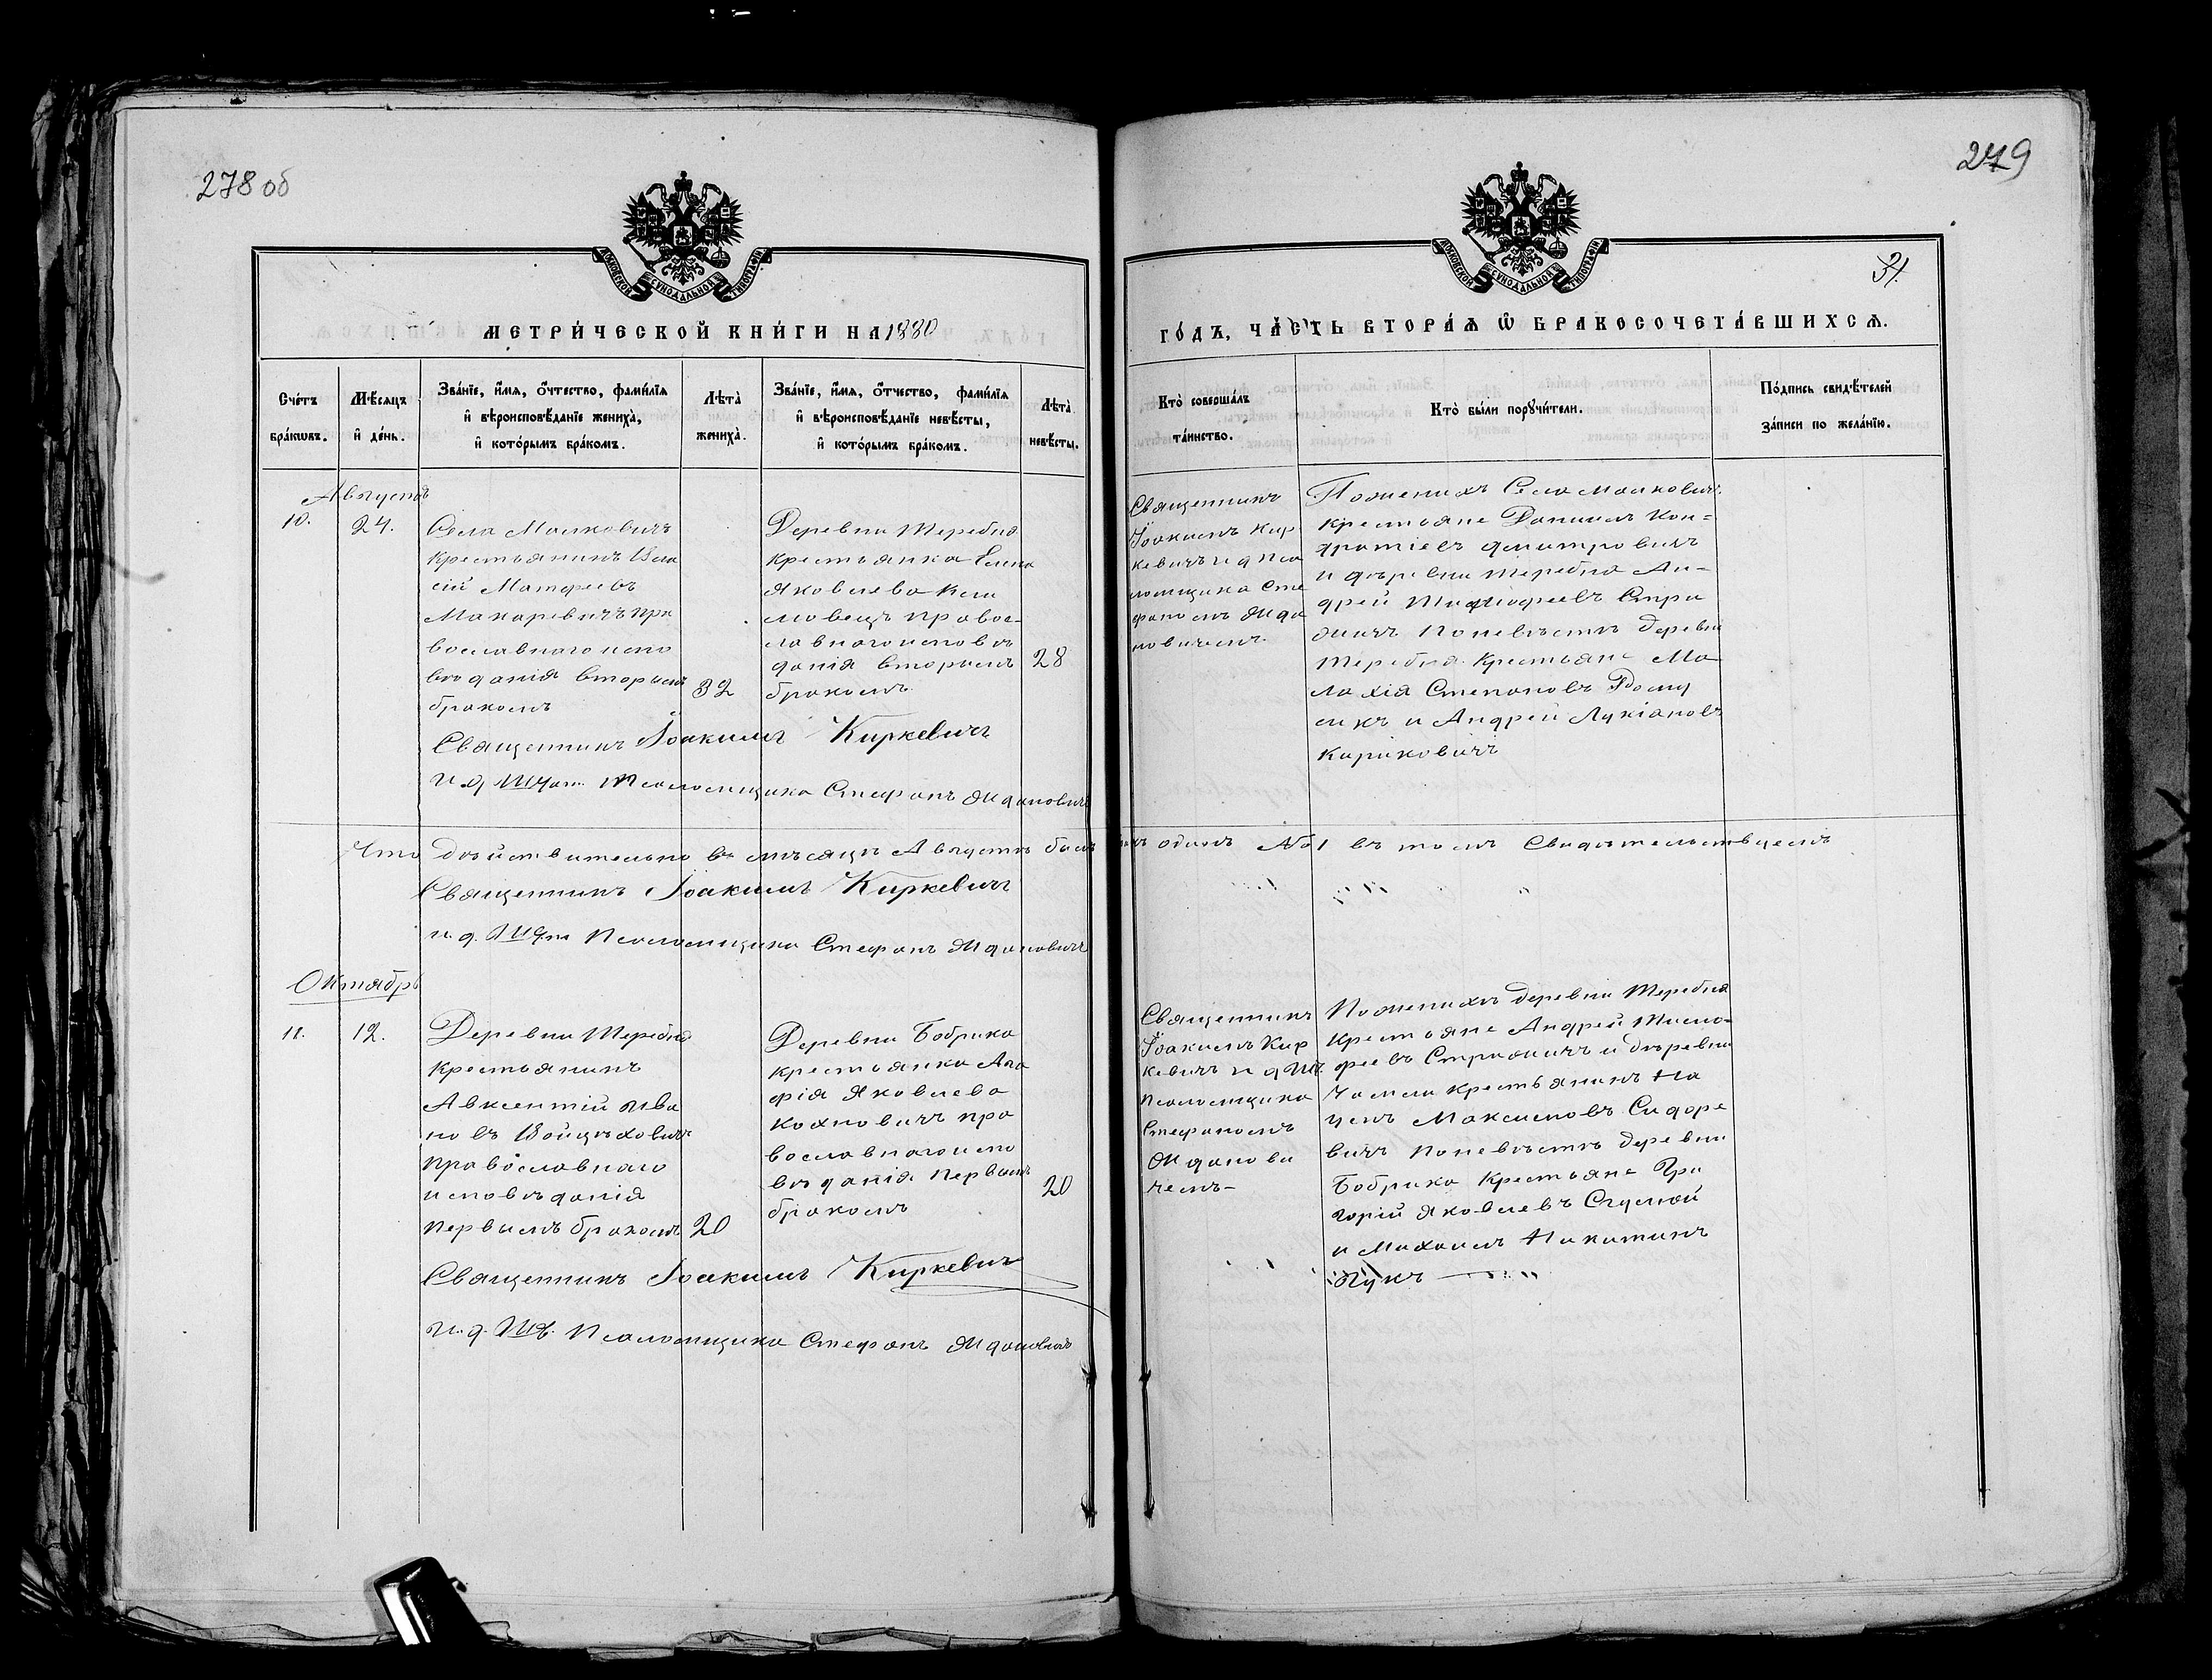 278 об
279
31.
МОСКОВСКОЙ СѴНОДАЛЬНОЙ ТИПОГРАФІИ
МОСКОВСКОЙ СѴНОДАЛЬНОЙ ТИПОГРАФІИ
МЕТРИ́ЧЕСКОЙ КНИ́ГИ НА 1880
ГО́ДЪ, ЧА́СТЬ ВТОРА́Ѧ Ѡ҆ БРАКОСОЧЕТА́ВШИХСѦ.
Сче́тъ
бра́кѡвъ.
Мѣ́сяцъ
и҆ де́нь.
Зва́нїе, и҆́мѧ, ѻ҆́тчество, фами́лїѧ
и҆ вѣроисповѣ́данїе жениха̀,
и҆ кото́рымъ бра́комъ.
Лѣ́та̀
жениха̀.
Зва́нїе, и҆́мѧ, ѻ҆́тчество, фами́лїѧ
и҆ вѣроисповѣ́данїе невѣ́сты,
и҆ кото́рымъ бра́комъ.
Лѣ́та̀
невѣ́сты.
Кто̀ соверша́лъ
та́инство.
Кто̀ бы́ли порꙋчи́тели.
По́дпись свидѣ́телей
за́писи по жела́нїю.
Августъ
10.
24.
Села Малковичъ
крестьянинъ Вла
сій Матфеевъ
Макаревичъ пра
вославнаго испо
вѣданія вторымъ
бракомъ
32
Деревни Теребня
крестьянка Елена
Яковлева Кли
мовецъ правос-
лавнаго исповѣ
данія вторымъ
бракомъ
28
Священникъ
Іоакимъ Кир
кевичъ и д Пса
ломщика Сте
фаномъ Жда
новичемъ.
По женихѣ Села Малкович.
крестьяне Даниилъ Кон-
дратіевъ Дмитровичъ
и деревни Теребня Ан-
дрей Тимофеевъ Стри
жичъ По невѣстѣ деревни
Теребня крестьяне Ма
лахія Степановъ
и Андрей Лукіановъ
Кириковичъ
Священникъ Іоакимъ Киркевичъ
и.д. Псаломщика Стефанъ Ждановичъ
Что дѣйствительно въ мѣсяцѣ Августѣ былъ бракъ одинъ № 1 въ томъ Свидѣтельствуемъ
Священникъ Іоакимъ Киркевичъ
и.д. Псаломщика Стефанъ Ждановичъ
Октябрь
11.
12.
Деревни Теребня
крестьянинъ
Авксентій Ива
новъ Войцѣховичъ
православнаго
исповѣданія
первымъ бракомъ
20
Деревни Бобрика
крестьянка Ага
фія Яковлева
Кохновичъ пра
вославнаго испо
вѣданія первымъ
бракомъ
20
Священникъ
Іоакимъ Кир
кевичъ и д
Псаломщика
Стефаномъ
Жданови
чемъ-
По женихѣ деревни Теребня
крестьяне Андрей Тимо-
феевъ Стрижичъ и деревни
крестьянинъ На
умъ Максимовъ Сидоре
вичъ По невѣстѣ деревни
Бобрика крестьяне Гри
горій Яковлевъ
и Михаилъ Никитинъ
Лукъ
Священникъ Іоакимъ Киркевичъ
и.д. Псаломщика Стефанъ Ждановичъ